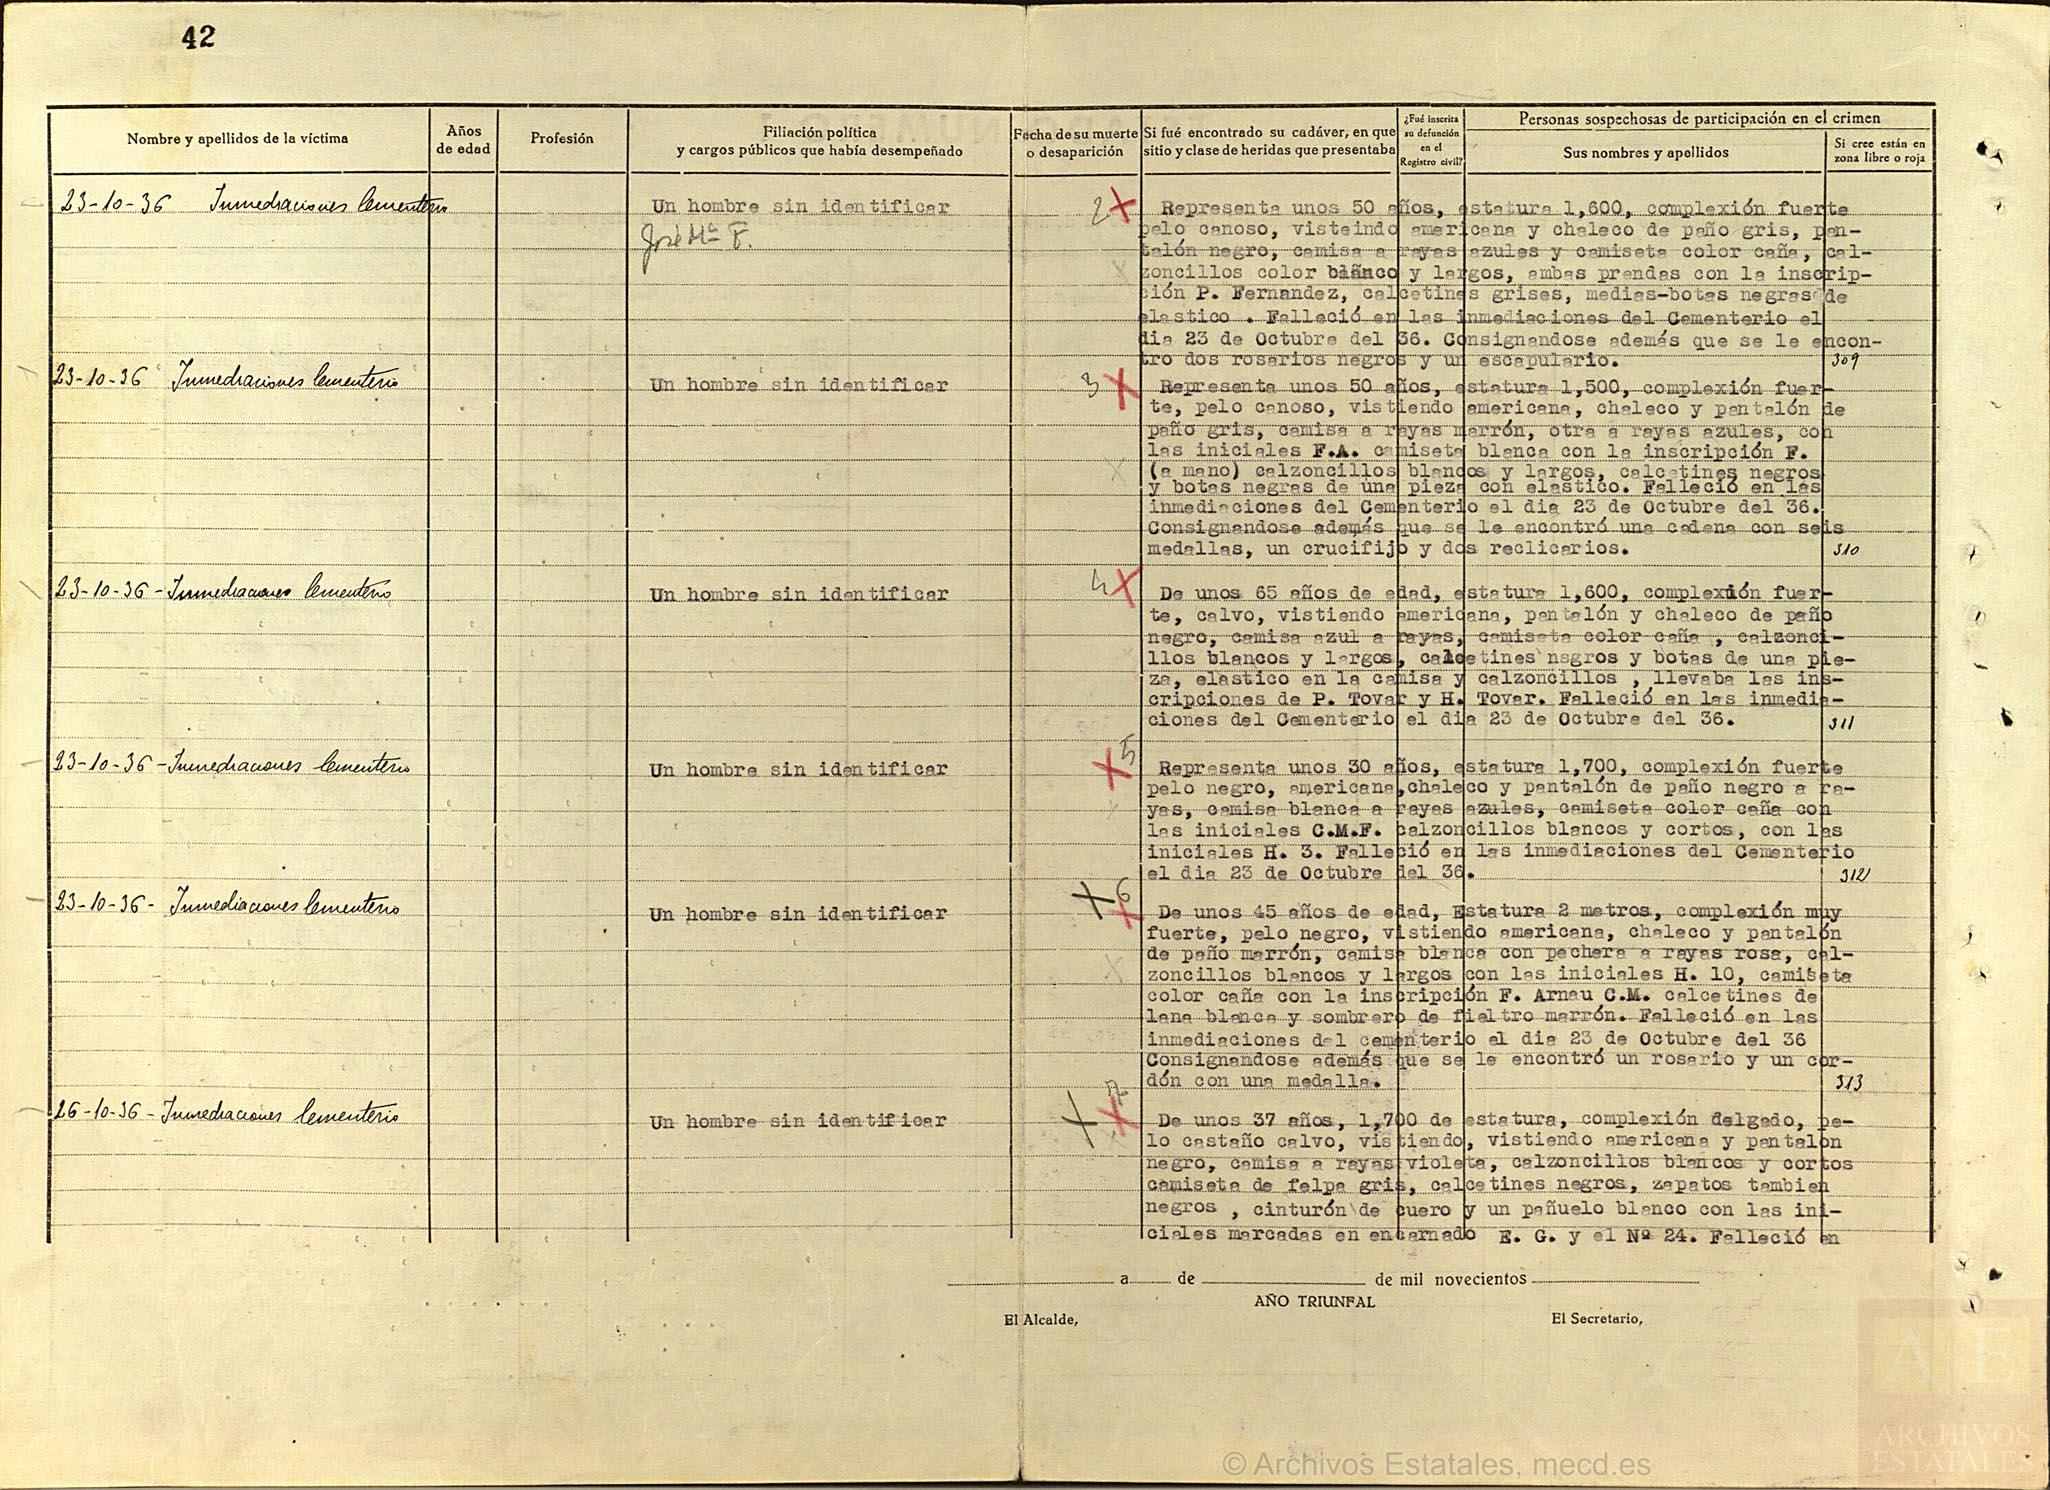 42
Nombre y apellidos de la víctima
Años de edad
Profesión
Filiación política y cargos públicos que había desempeñado
Fecha de su muerte o desaparición
Si fué encontrado su cadáver, en que sitio y clase de heridas que presentaba
¿Fué inscrita su defunción en el Registro civil?
Personas sospechosas de participación en el crimen
Sus nombres y apellidos
Si cree están en zona libre o roja
23-10-36 Inmediaciones Cementerio
Un hombre sin identificar
José Mª F.
2 X
Representa unos 50 años, estatura 1,600, complexión fuerte
pelo canoso, visteindo americana y chaleco de paño gris, pan-
talón negro, camisa a rayas azules y camiseta color caña, cal-
zoncillos color blanco y largos, ambas prendas con la inscrip-
ción P. Fernandez, calcetines grises, medias-botas negras de
elastico . Falleció en las inmediaciones del Cementerio el
dia 23 de Octubre del 36. Consignandose además que se le encon-
tro dos rosarios negros y un escapulario.
309
23-10-36 Inmediaciones Cementerio
Un hombre sin identificar
3 X
Representa unos 50 años, estatura 1,500, complexión fuer-
te, pelo canoso, vistiendo americana, chaleco y pantalón de
paño gris, camisa a rayas marrón, otra a rayas azules, con
las iniciales F.A. camiseta blanca con la inscripción F.
(a mano) calzoncillos blancos y largos, calcetines negros
y botas negras de una pieza con elastico. Falleció en las
inmediaciones del Cementerio el dia 23 de Octubre del 36.
Consignandose además que se le encontró una cadena con seis
medallas, un crucifijo y dos reclicarios.
310
23-10-36 - Inmediaciones Cementerio
Un hombre sin identificar
4 X
De unos 65 años de edad, estatura 1,600, complexión fuer-
te, calvo, vistiendo americana, pantalón y chaleco de paño
negro, camisa azul a rayas, camiseta color caña , calzonci-
llos blancos y largos, calcetines nsgros y botas de una pie-
za, elastico en la camisa y calzoncillos , llevaba las ins-
cripciones de P. Tovar y H. Tovar. Falleció en las inmedia-
ciones del Cementerio el dia 23 de Octubre del 36.
311
23-10-36 - Inmediaciones Cementerio
Un hombre sin identificar
X 5
Representa unos 30 años, estatura 1,700, complexión fuerte
pelo negro, americana,chaleco y pantalón de paño negro a ra-
yas, camisa blanca a rayas azules, camiseta color caña con
las iniciales C.M.F. calzoncillos blancos y cortos, con las
iniciales H. 3. Falleció en las inmediaciones del Cementerio
el dia 23 de Octubre del 36.
312
23-10-36 - Inmediaciones Cementerio
Un hombre sin identificar
X 6 X
De unos 45 años de edad, Estatura 2 metros, complexión muy
fuerte, pelo negro, vistiendo americana, chaleco y pantalón
de paño marrón, camisa blanca con pechera a rayas rosa, cal-
zoncillos blancos y largos con las iniciales H. 10, camiseta
color caña con la inscripción F. Arnau C.M. calcetines de
lana blanca y sombrero de fieltro marrón. Falleció en las
inmediaciones del cementerio el dia 23 de Octubre del 36
Consignandose además que se le encontró un rosario y un cor-
dón con una medalla.
313
26-10-36 - Inmediaciones Cementerio
Un hombre sin identificar
X 7 X
De unos 37 años, 1,700 de estatura, complexión delgado, pe-
lo castaño calvo, vistiendo, vistiendo americana y pantalon
negro, camisa a rayas violeta, calzoncillos blancos y cortos
camiseta de felpa gris, calcetines negros, zapatos tambien
negros , cinturón de cuero y un pañuelo blanco con las ini-
ciales marcadas en encarnado E. G. y el Nº 24. Falleció en
a de de mil novecientos
AÑO TRIUNFAL
El Alcalde,
El Secretario,
AE
ARCHIVOS
ESTATALES
© Archivos Estatales, mecd.es